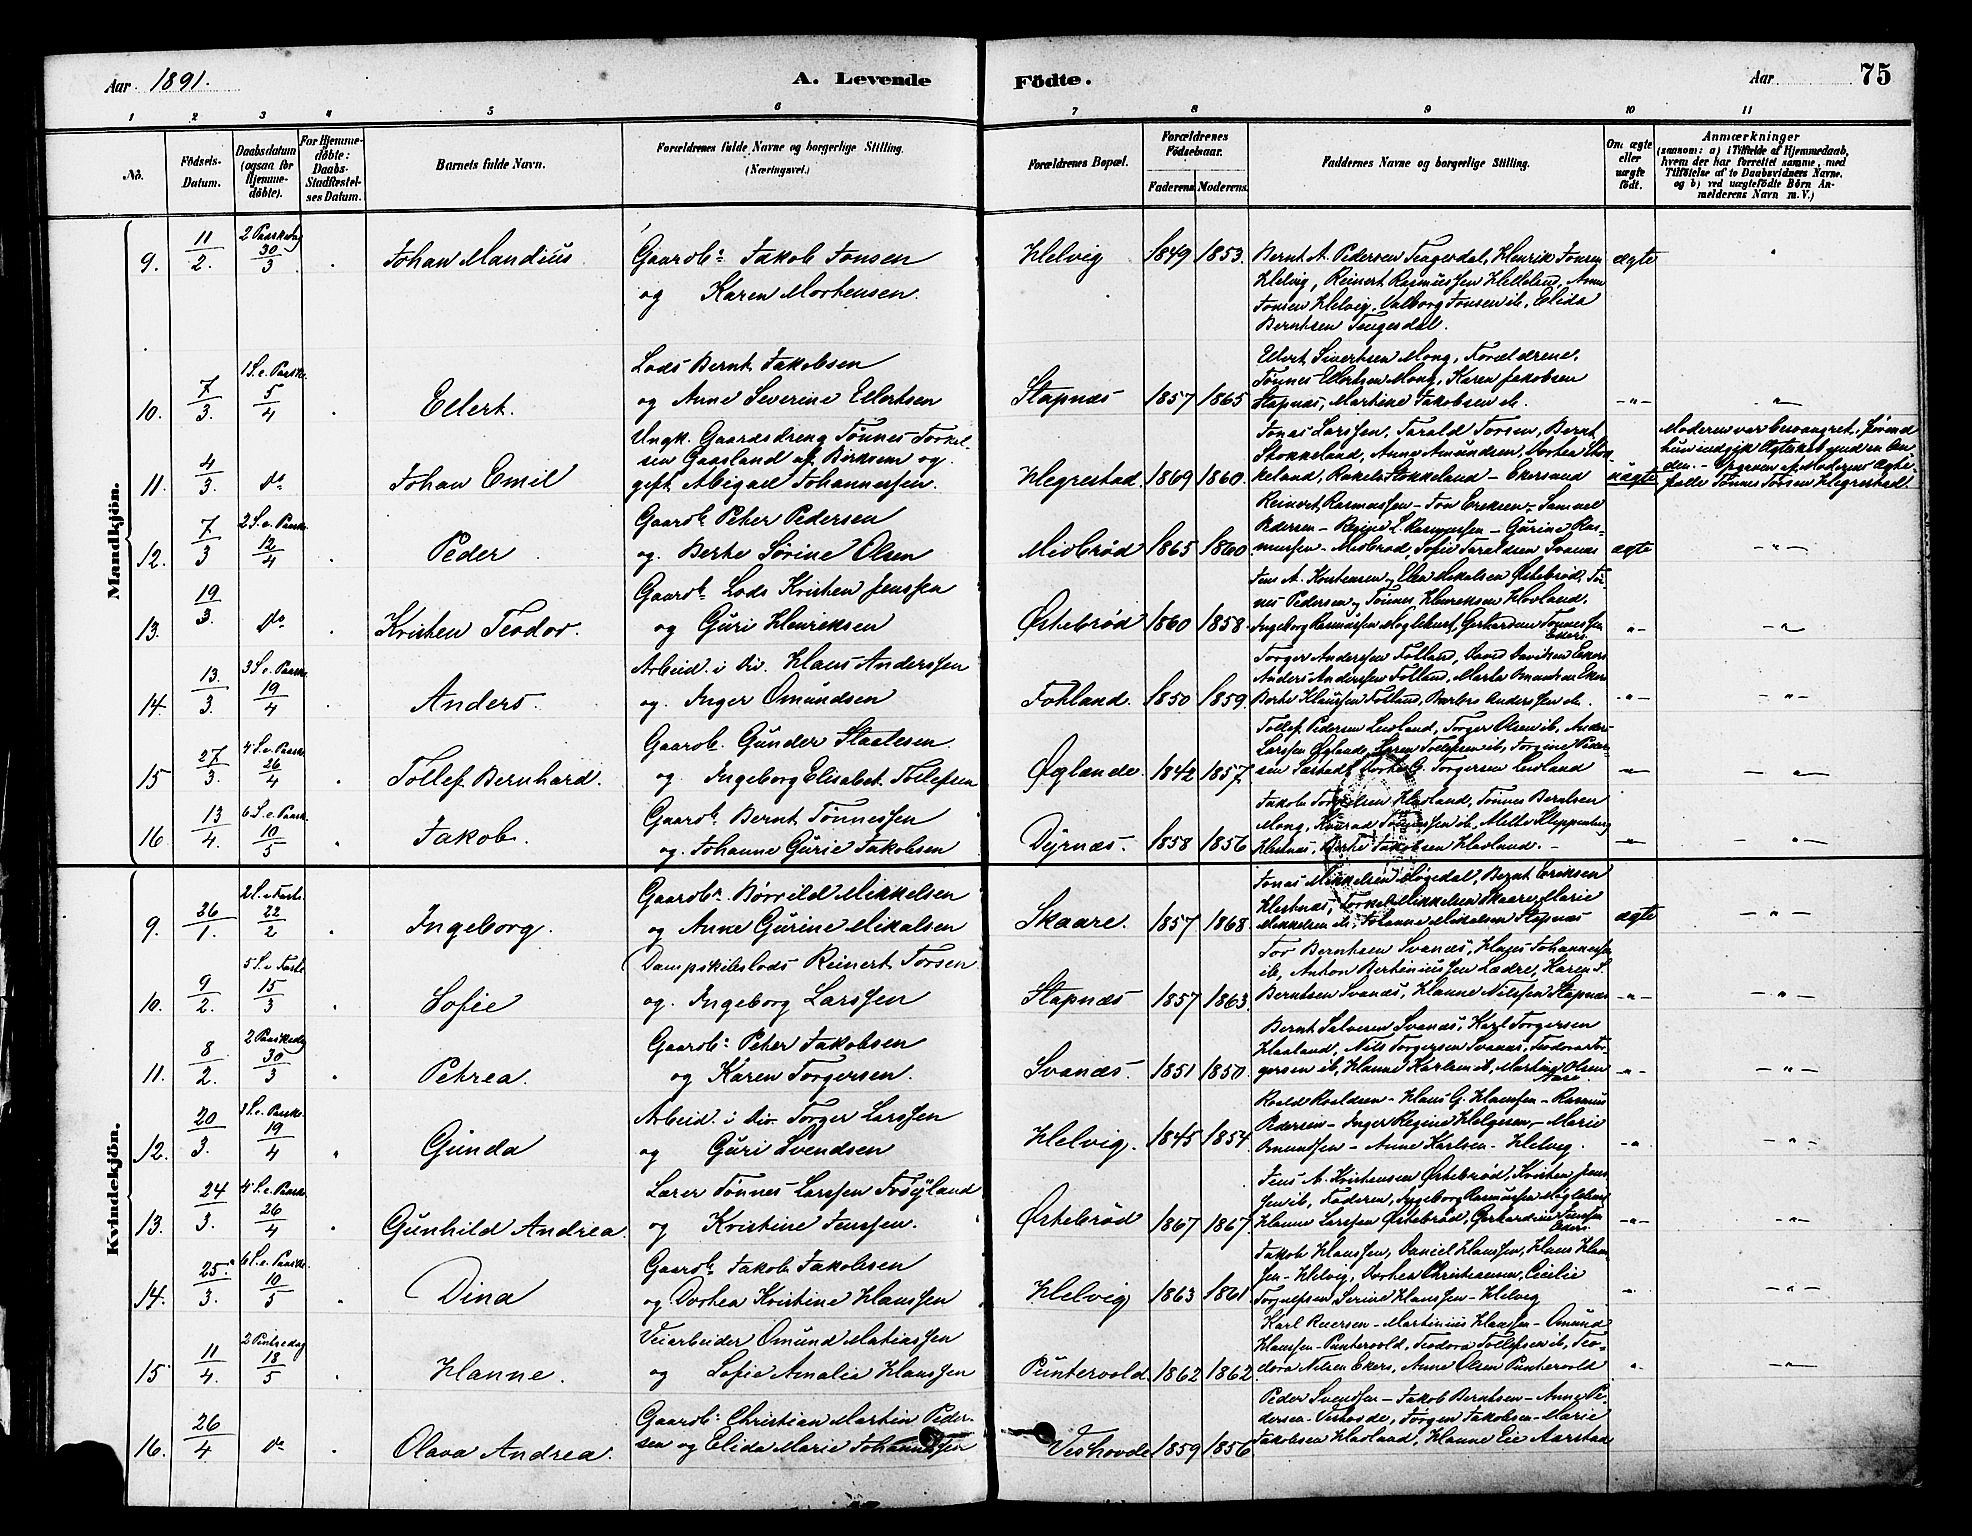 Aar 1891.
A. Levende
Födte.
Aar
75
1 2 3 4 5 6 7 8 9 10 11
No.
Födsels-Datum.
Daabsdatum (ogsaa for Hjemme-döbte).
For Hjemme-döbte: Daabs-Stadfæstel-ses Datum.
Barnets fulde Navn.
Forældrenes fulde Navne og borgerlige Stilling. (Næringsvei.)
Forældrenes Bopæl.
Forældrenes Födselsaar.
Faderens Moderens.
Faddernes Navne og borgerlige Stilling.
Om ægte eller uægte födt.
Anmærkninger
(saasom: a) i Tilfælde af Hjemmedaab, hvem der har forrettet samme, med Tilföielse af to Daabsvidners Navne. og b) ved uægtefödte Börn An-melderens Navn m.V.)
Mandkjön.
9. 11/2. 2 Paaskedag 30/3 Johan Mandius Gaardb. Jakob Jonsen
og Karen Mortensen. Helvig 1849 1853. Bernt A. Pedersen Tengesdal, Henrik Jonsen
Helvig, Reinert Rasmussen Helleland, Anne
Jonsen Helvig, Valborg Jonsen ib, Elida
Berntsen Tengesdal. ægte
10. 7/3. 1 S. e. Paaske 5/4 Ellert. Lods Bernt Jakobsen
og Anne Severine Ellertsen Stapnæs 1857 1865 Ellert Sivertsen Mong, Forældrene,
Tönnes Ellertsen Mong, Karen Jakobsen
Stapnæs, Martine Jakobsen ib. -"- "
11. 4/3. do Johan Emil Ungk. Gaardsdreng Tönnes Torkel-
sen Gaasland af Birkrem og
gift Abigael Johannessen. Hegrestad. 1869 1860. Jonas Larssen, Tarald Torsen, Bernt
Stokkeland, Anne Amundsen, Dorthea Stok-
keland, Rakel Stokkeland - Ekersund uægte Moderen var besvangret, förend
hun indgik Ægteskab med en An-
den. - Opgaven af Moderens Ægte-
fælle Tönnes Torsen Hegrestad.
12. 7/3 2 S. e. Paaske 12/4 Peder Gaardb. Peter Pedersen
og Berte Sörine Olsen Midbröd 1865 1860 Reinert Rasmussen - Jon Eriksen - Samuel
Pedersen - Regine L. Rasmussen - Gurine Ras-
mussen - Midbröd, Sofie Taraldsen Svanæs ægte -"-
13. 19/3. do Kristen Teodor. Gaardb. Lods Kristen Jenssen
og Guri Henriksen Østebröd 1860 1858. Jens A. Kristensen, Elen Mikalsen Østebröd, Tön-
nes Pedersen, Tönnes Henriksen Hovland,
Ingeborg Rasmussen Moglehus, Gerhardine Tönnessen
Ekers. "- -"-
14. 13/3. 3 S. e. Paaske 19/4 Anders. Arbeid. i Div. Hans Anderssen
og Inger Omundsen Fotland. 1850 1859. Torger Anderssen Fotland, David Davidsen Ekers
Anders Anderssen Fotland, Marta Omundsen Ekers
Berte Hanssen Fotland, Barbro Anderssen ib. -"- -"-
15 27/3. 4 S. e. Paaske 26/4 Tollef Bernhard. Gaardb. Gunder Staalesen
og Ingeborg Elisabet Tollefsen Øglænde. 1842 1857. Tollef Pedersen Leidland, Torger Olsen ib, Anders
Larssen Øglænde, Sören Tollefsen ib, Torgine Peder-
sen Sæstad, Dorte G. Torgersen Leidland -"- -"-
16 13/4. 6 S. e. Paaske 10/5 Jakob. Gaardb. Bernt Tönnessen
og Johanne Gurie Jakobsen Dyrnæs. 1858 1856 Jakob Torkelsen Hadland, Tönnes Berntsen
Mong, Konrad Tönnessen ib, Mette Kloppenberg
Hestnæs, Berte Jakobsen Hadland. -"- "-
Kvindekjön.
9. 26/1. 2 S. i Faste 22/2 Ingeborg. Gaardb. Börrild Mikkelsen
og Anne Gurine Mikalsen Skaare. 1857 1868. Jonas Mikkelsen Mögedal, Bernt Eriksen
Hestnæs, Torkel Mikkelsen Skaare, Marie
Mikkelsen ib, Johanne Mikalsen Stapnæs ægte -"-
10. 9/2. 5 S. i Faste 15/3 Sofie Dampskibslods Reinert Torsen
og Ingeborg Larssen Stapnæs 1857 1863. Tor Berntsen Svanæs, Hans Johannessen
ib, Anton Bertiniussen Lædre, Karen S.
Berntsen Svanæs, Hanne Nilssen Stapnæs -"- -"-
11. 8/2. 2 Paaskedag 30/3 Petrea. Gaardb. Peter Jakobsen
og Karen Torgersen. Svanæs. 1851 1850. Bernt Salvesen Svanæs, Karl Torgersen
Haaland, Nils Torgersen Svanæs, Teodora Tor-
gersen ib, Hanne Karlsen ib, Martine Olsen -"- -"-
12. 20/3. 3 S. e. Paaske 19/4 Gunda Arbeid. i Div. Torger Larssen
og Guri Svendsen Helvig. 1845 1854 Roald Roaldsen - Hans G. Hanssen - Rasmus
Pedersen - Inger Regine Helgesen - Marie
Omundsen - Anne Karlsen - Helvig. -"- -"-
13. 24/3. 4 S. e. Paaske 26/4 Gunhild Andrea. Lærer Tönnes Larssen Fosyland
og Kristine Jenssen. Østebröd 1867 1867. Jens A. Kristensen Østebröd, Kristen Jens-
sen ib, Faderen, Ingeborg Rasmussen Moglehus
Hanne Larssen Østebröd, Gerhardine Jenssen
Ekers. -"- -"-
14. 25/3. 6 S. e. Paaske 10/5 Dina Gaardb. Jakob Jakobsen
og Dorthea Kristine Hanssen Helvig 1863 1861 Jakob Hanssen, Daniel Hanssen, Hans Hans-
sen - Helvig, Dorthea Christiansen, Cicilie
Torgersen, Serine Hanssen - Helvig "- -"-
15 11/4. 2 Pintsedag 18/5 Hanne. Veiarbeider Omund Matiassen
og Sofie Amalie Hanssen Puntervold. 1862 1862. Karl Reiersen - Martinius Hanssen - Omund
Hanssen - Puntervold, Teodora Tollefsen ib, Teo-
dora Nilsen Ekers, Anne Olsen Puntervold " -"-
16. 26/4 do Olava Andrea. Gaardb. Christian Martin Peder-
sen og Elida Marie Johannessen Veshovde 1859 1856 Peder Svendsen - Jakob Berntsen - Anne Pe-
dersen - Veshovde, Jörgen Jakobsen - Marie
Jakobsen Hadland, Hanne Eie Aarstad